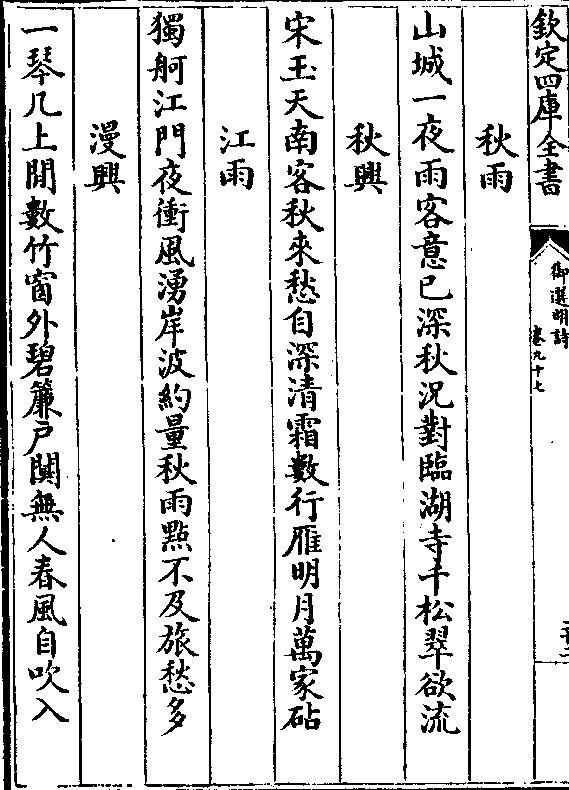 欽定四庫全書
御選明詩
卷九十七
秋雨
山城一夜雨客意已深秋況對臨湖寺千松翠欲流
秋興
宋玉天南客秋來愁自深清霜數行雁明月萬家砧
江雨
獨舸江門夜衝風湧岸波約量秋雨點不及旅愁多
漫興
一琴几上閒數竹窗外碧簾戶闃無人春風自吹入